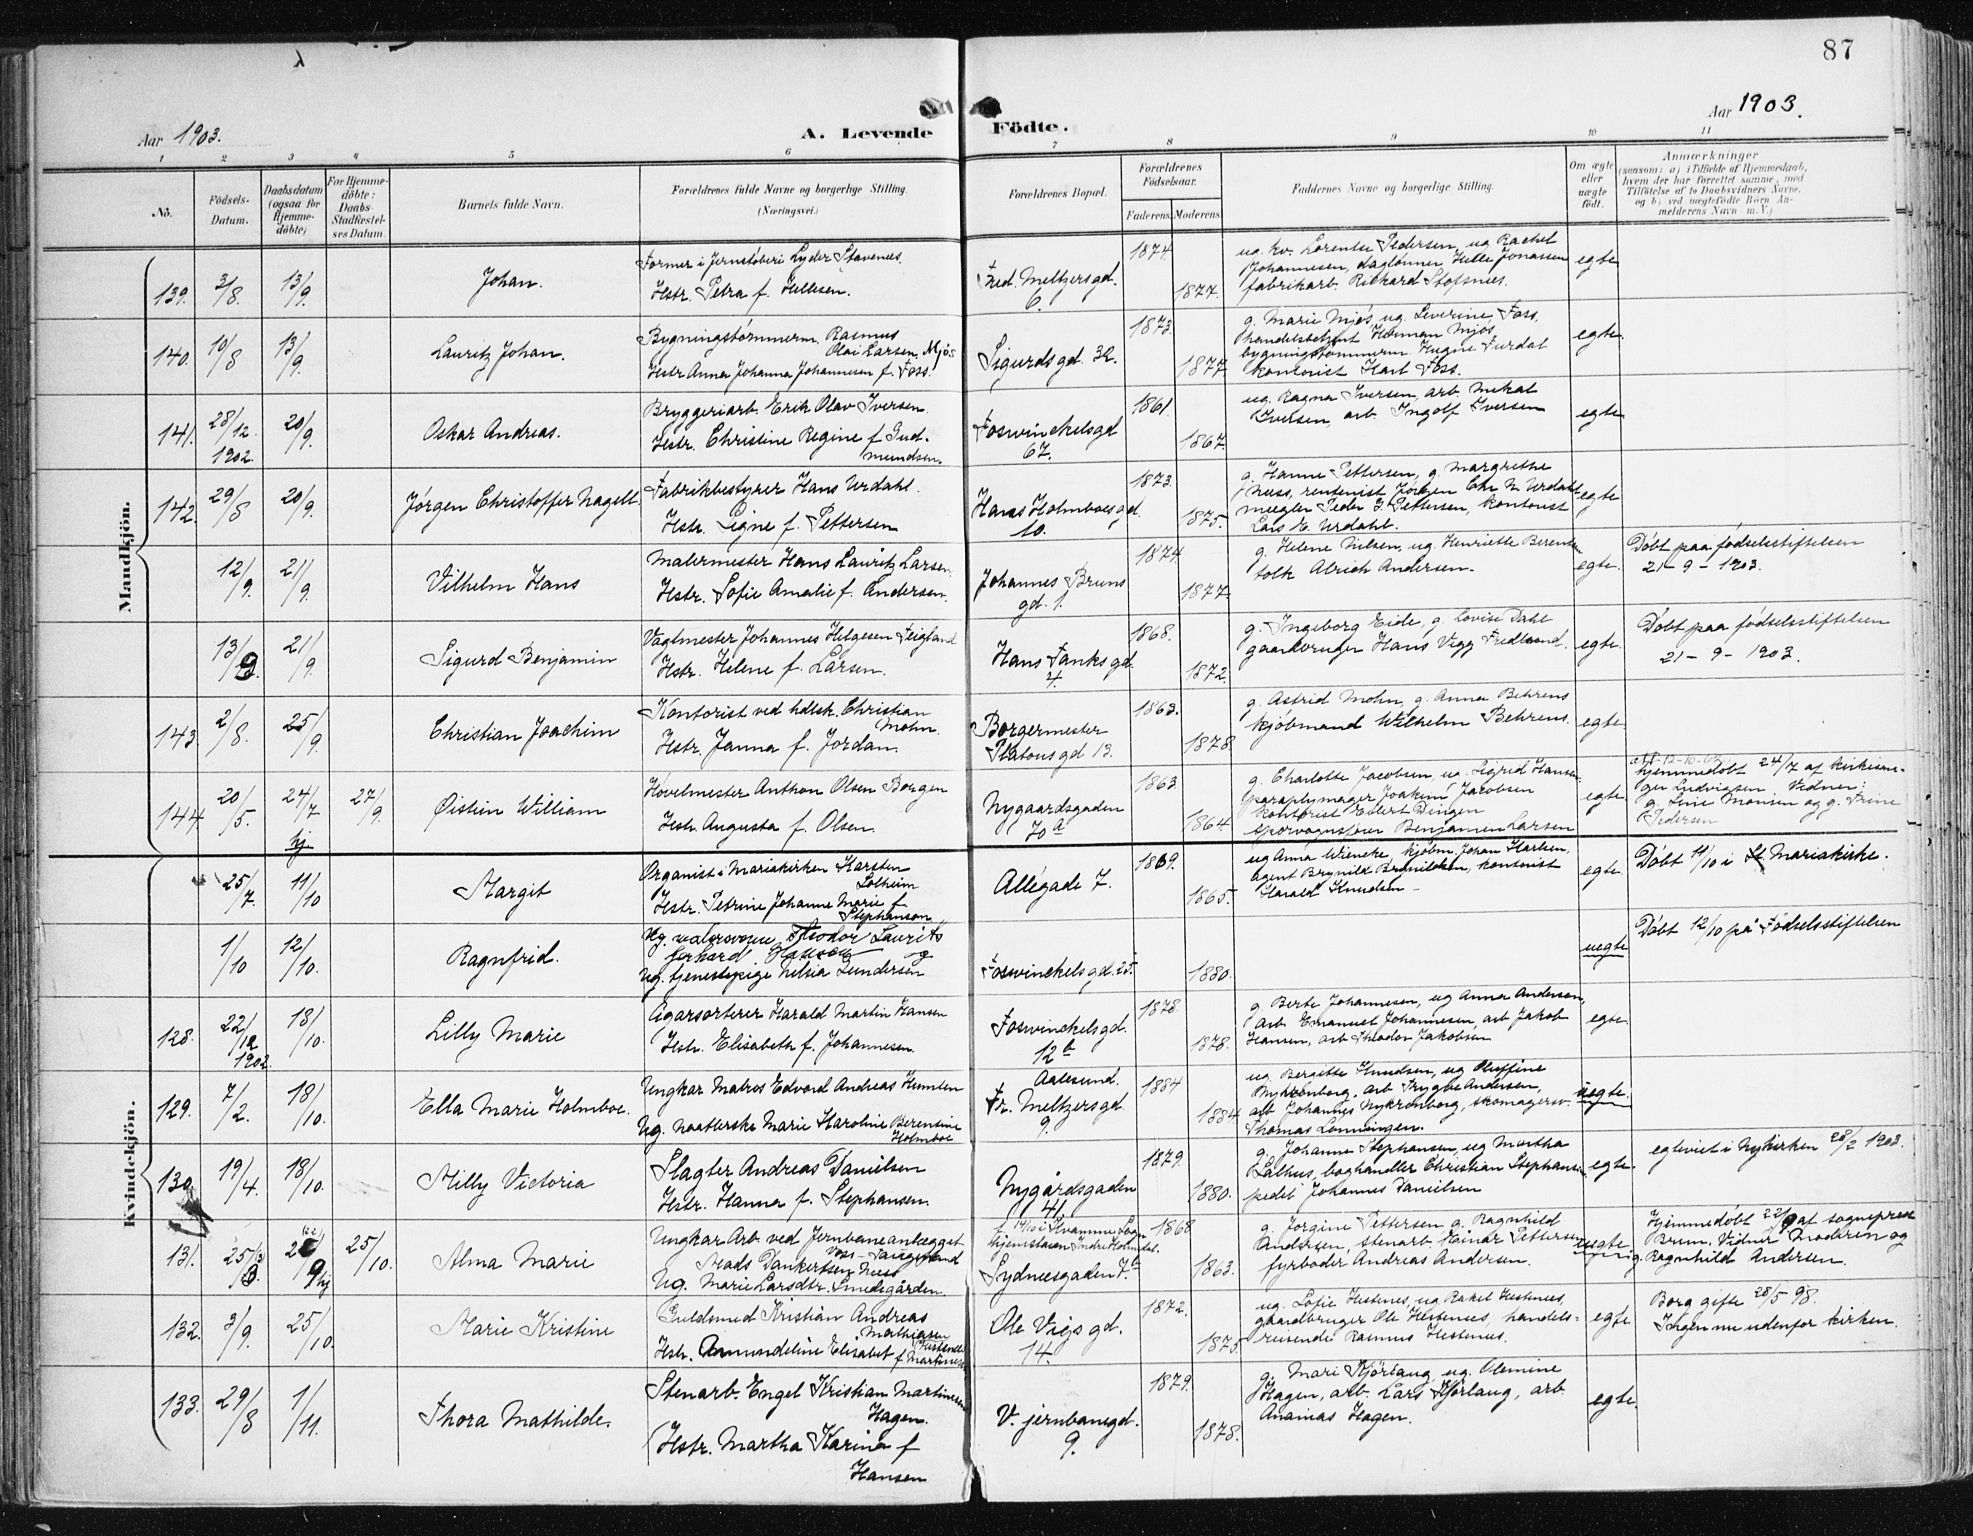 87
Aar 1903.
A. Levende Födte.
Aar 1903.
1 2 3 4 5 6 7 8 9 10 11
No.
Födsels-Datum.
Daabsdatum (ogsaa for Hjemme-döbte)
For Hjemme-döbte: Daabs-Stadfæstel-ses Datum.
Barnets fulde Navn.
Forældrenes fulde Navne og borgerlige Stilling. (Næringsvei.)
Forældrenes Bopæl.
Forældrenes Födselsaar.
Faderens. Moderens.
Faddernes Navne og borgerlige Stilling.
Om ægte eller uægte födt.
Anmærkninger
(saasom: a) i Tilfælde af Hjemmedaab, hvem der har forrettet samme, med Tilföielse af to Daabsvidners Navne, og b) ved uægtefödte Börn An-melderens Navn m. V.)
Mandkjön.
139. 3/8. 13/9. Johan.
Former i Jernstøberi Lyder Stavenes.
Hstr. Petra f. Hellesen.
Fred. Meltzersgd. 6.
1874. 1877.
ug. kv. Lorentse Pedersen, ug Rachel
Johannesen, daglønner Helle Jonassen
fabrikarb. Rickard
egte
140. 19/8 13/9. Lauritz Johan.
Bygningstømmerm. Rasmus
Olai Larsen Mjøs
Hstr Anna Johanna Johannesen f. Foss.
Sigurdsgd. 32.
1873. 1877.
g. Marie Mjøs, ug. Severine Foss,
handelsbetjent Herman Mjøs,
bygningstømmerm
kontorist Karl Foss.
egte.
141. 28/12. 1902. 20/9. Oskar Andreas.
Bryggeriarb. Erik Olav Iversen.
Hstr. Christine Regine f. Gud-
mundsen.
Foswinckelsgd 67.
1861. 1867.
ug. Ragna Iversen, arb. Mikal
Iversen, arb Ingolf Iversen
egte
142. 29/8 20/9. Jörgen Christoffer Nagell.
Fabrikbestyrer Hans Urdahl.
Hstr. Signe f. Pettersen
Hans Holmboesgd. 10.
1873. 1875.
g. Hanne Pettersen, g. Margrethe
Ness, rentenist Jörgen Chr N. Urdahl
megler Peder J. Pettersen, kontorist
Lars E. Urdahl.
egte
12/9. 21/9. Vilhelm Hans
Malermester Hans Lauritz Larsen.
Hstr. Sofie Amalie f. Andersen.
Johannes Bruns gd. 1.
1874 1877
g. Helene Nilsen, ug. Henriette Berentsen
tolk Alrich Andersen.
egte.
Døbt paa fødselsstiftelsen
21-9-1903.
13/9. 21/9. Sigurd Benjamin
Vagtmester Johannes Helgesen Teigland
Hstr. Helene f. Larsen.
Hans Tanksgd 4.
1868. 1872.
g. Ingeborg Eide, g. Lovise Dahl
gaardbruger Hans Vigg
egte.
Døbt paa fødselsstiftelsen
21-9-1903.
143. 2/8. 25/9. Christian Joachim
Kontorist ved hdlsk. Christian
Mohn.
Hstr. Janna f. Jordan.
Borgermester Platousgd 13.
1863. 1878.
g. Astrid Mohn, g. Anna Behrens
kjøbmand Wilhelm Behrens.
egte.
144 20/5. 24/7 hj. 27/9. Øistein William
Høvelmester Anthon Olsen Borgen
Hstr. Augusta f. Olsen.
Nygaardsgaden 70 a
1863 1864.
g. Charlotte Jacobsen, ug. Sigrid Hansen
paraplymager Joakim Jacobsen
kontorist Eilert Dingen
sporvognsfører Benjamin Larsen
egte.
hjemmedøbt 24/7 af kirkesan-
ger Ludvigsen. Vidner:
g. Line Monsen og g. Trine
Pedersen
Kvindekjön.
25/7. 11/10 Margit
Organist i Mariakirken Karsten
Solheim
Hstr. Petrine Johanne Marie f.
Stephanson
Allégade 7.
1869. 1865.
ug Anna Wieneke, kjøbm. Johan
agent Brynild Brynildsen, kontorist
Harald Knudsen
egte.
Døbt 11/10 i St. Mariakirke.
1/10 12/10. Ragnfrid.
Ug. malersvene Theodor Laurits
Gerhard Hansen og
ug. tjenestepige Nilsia Gundersen
Foswinckelsgd. 25.
1880.
uegte
Døbt 12/10 på Fødselsstiftelsen
128. 22/12 1902. 18/10. Lilly Marie
Cigarsorterer Harald Martin Hansen
Hstr. Elisabeth f. Johannesen.
Foswinckelsgd. 12 b
1878. 1878.
g. Berte Johannesen, ug Anna Andersen,
arb. Emanuel Johannesen, arb Jakob
Hansen, arb Theodor Jakobsen
egte.
129. 7/2. 18/10. Ella Marie Holmboe.
Ungkar Matros Edvard Andreas Humlen
Ug. Marie Karoline Berentine
Holmboe
Aalesund.
Fr. Meltzersgd. 9.
1884 1884.
ug. Bergitte Knudsen, ug Oluffine
Nykrenborg, arb Trygve Andersen,
arb Johannes Nykrönborg, skomagersv.
Thomas Lonningen.
uegte.
130. 19/4. 18/10. Milly Victoria
Slagter Andreas Danielsen
Hstr. Hanna f. Stephansen.
Nygårdsgaden 41.
1879. 1880.
g. Johanne Stephansen, ug Martha
Dalhus, boghandler Christian Stephansen
Johannes Danielsen
egte.
egteviet i Nykirken 28/2 1903.
131. 25/3 25/9 hj (22) 25/10. Alma Marie
Ungkar Arb ved Jernbaneanlægget
Voss-Taugevand
Mads Dankertsen Ness
Ug. Marie Larsdtr. Smedegården.
f. 14/10 i Kvamme Sogn
Sydnesgaden 7 b
1868 1863.
g. Jorgine Pettersen g. Ragnhild
Andersen, stenarb. Einar Pettersen
fyrbøder Andreas Andersen.
uegte
Hjemmedøbt 22/9 af sogneprest
Brun. Vidner: Moderen og
g. Ragnhild Andersen.
132. 3/9. 25/10. Marie Kristine
Guldsmed Kristian Andreas
Mathiasen
Hestenes
Hstr. Amundeline Elisabet f Martinesen
Ole Vigs gd. 14.
1872. 1875.
ug. Sofie Hestenes, ug Rakel Hestenes,
gaardbruger Ole Hestenes, handels-
reisende Rasmus Hestenes.
egte
Borg gifte 28/5 98.
Ingen nu udenfor kirken.
133. 29/8 1/11. Thora Mathilde.
Stenarb. Engel Kristian Martinesen
Hagen.
Hstr. Martha Karina f
Hansen
V. jernbanegd. 9.
1879. 1878.
g. Mari Kjörlaug, ug. Olemine
Hagen, arb. Lars Kjörlaug, arb.
Ananias Hagen.
egte.